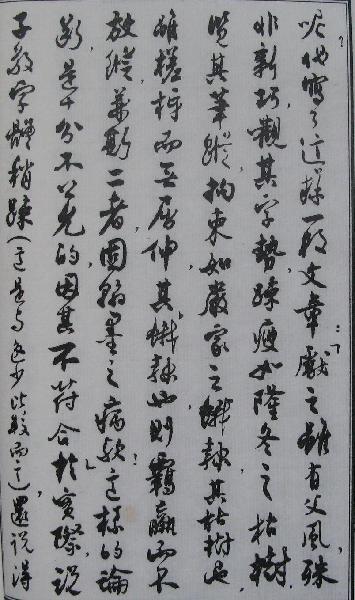 呢？他写了这样一段文章：「献之虽有父风，殊
非新巧。观其字势疏瘦，如隆冬之枯树；
览其笔踪拘束，如严家之饿隶。其枯树也，
虽槎枿而无屈伸；其饿隶也，则羁羸而不
放纵。兼斯二者，固翰墨之病欤！」这样的论
断，是十分不公允的，因其不符合于实际，说
子敬字体稍疏（这是与逸少比较而言），还说得